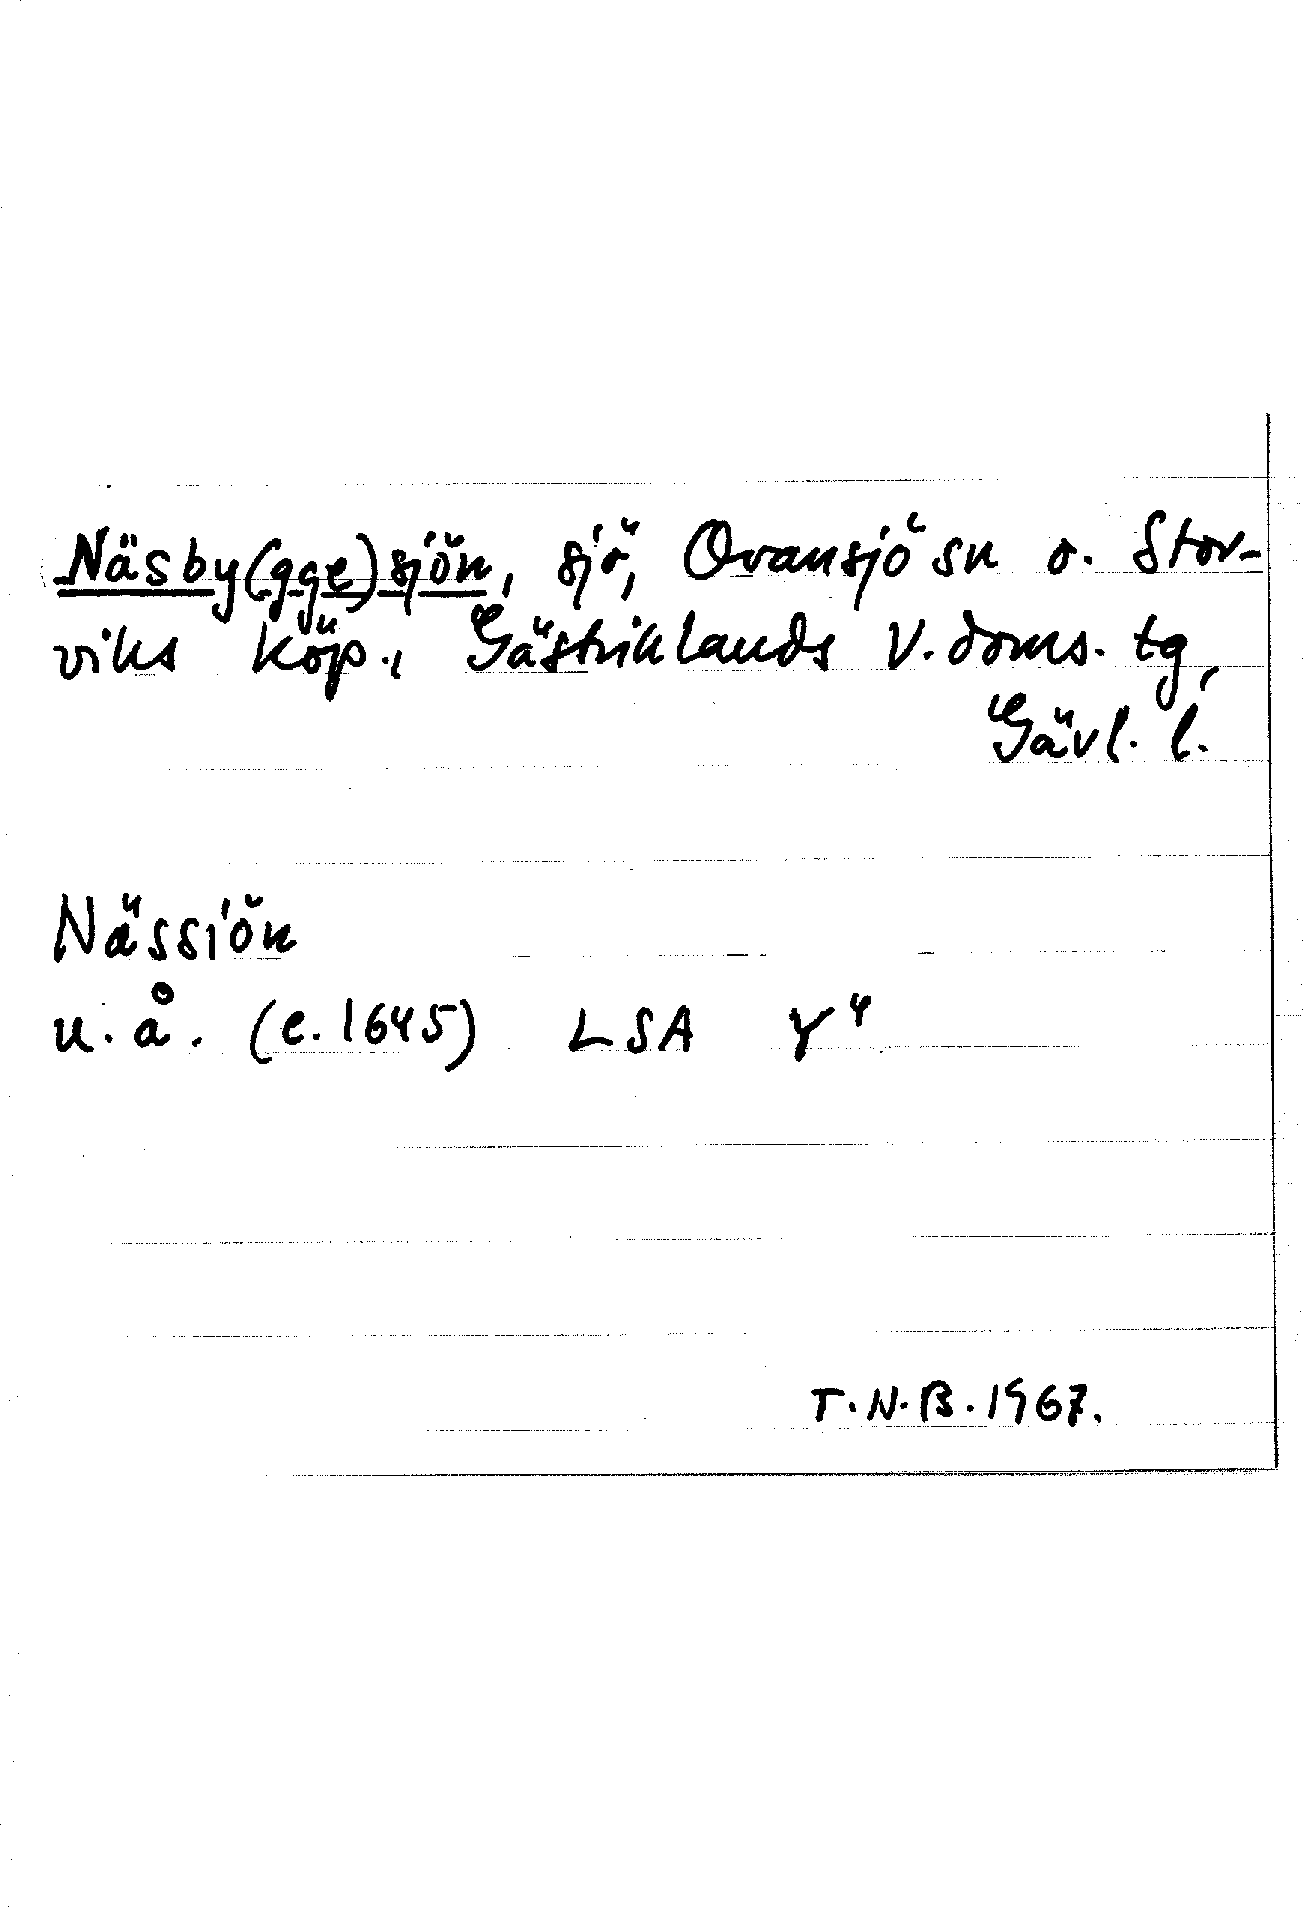 Näsby(gge)sjön, sjö, Ovansjö sn o. Stor-
viks köp., Gästriklands V. doms. tg,
Gävl. l.
Nässiön
u. å. (c. 1645) LSA Y⁴
T.N.B. 1967.